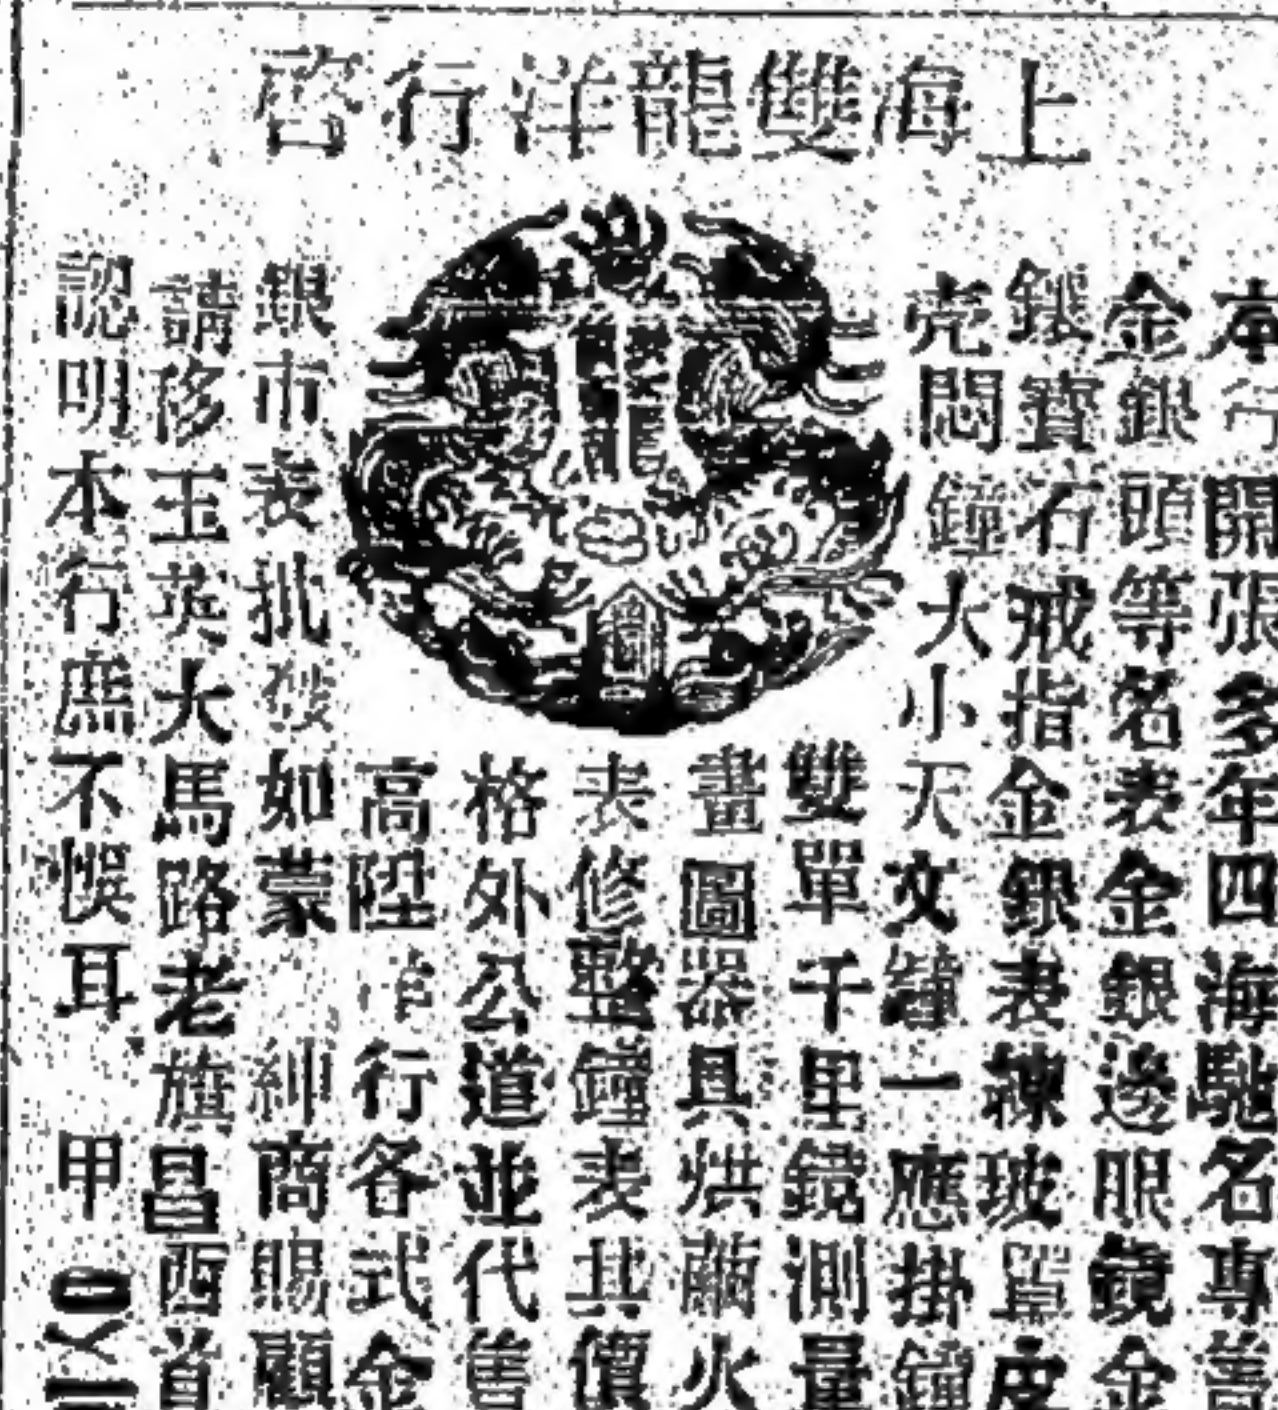 上海雙龍洋行啓
本行開張多年四海馳名專善
金銀頭等名表金銀邊眼鏡金
鑲寶石戒指金銀表鍊玻璃皮
壳悶鐘大小天文鐘一應掛鐘
雙單千里鏡測量
畫圖器具烘繭火
表修整鐘表其價
格外公道並代售
高陞作行各式金
銀市表批發如蒙紳商賜顧
請移玉英大馬路老旗昌西首
認明本行庶不悞耳 甲